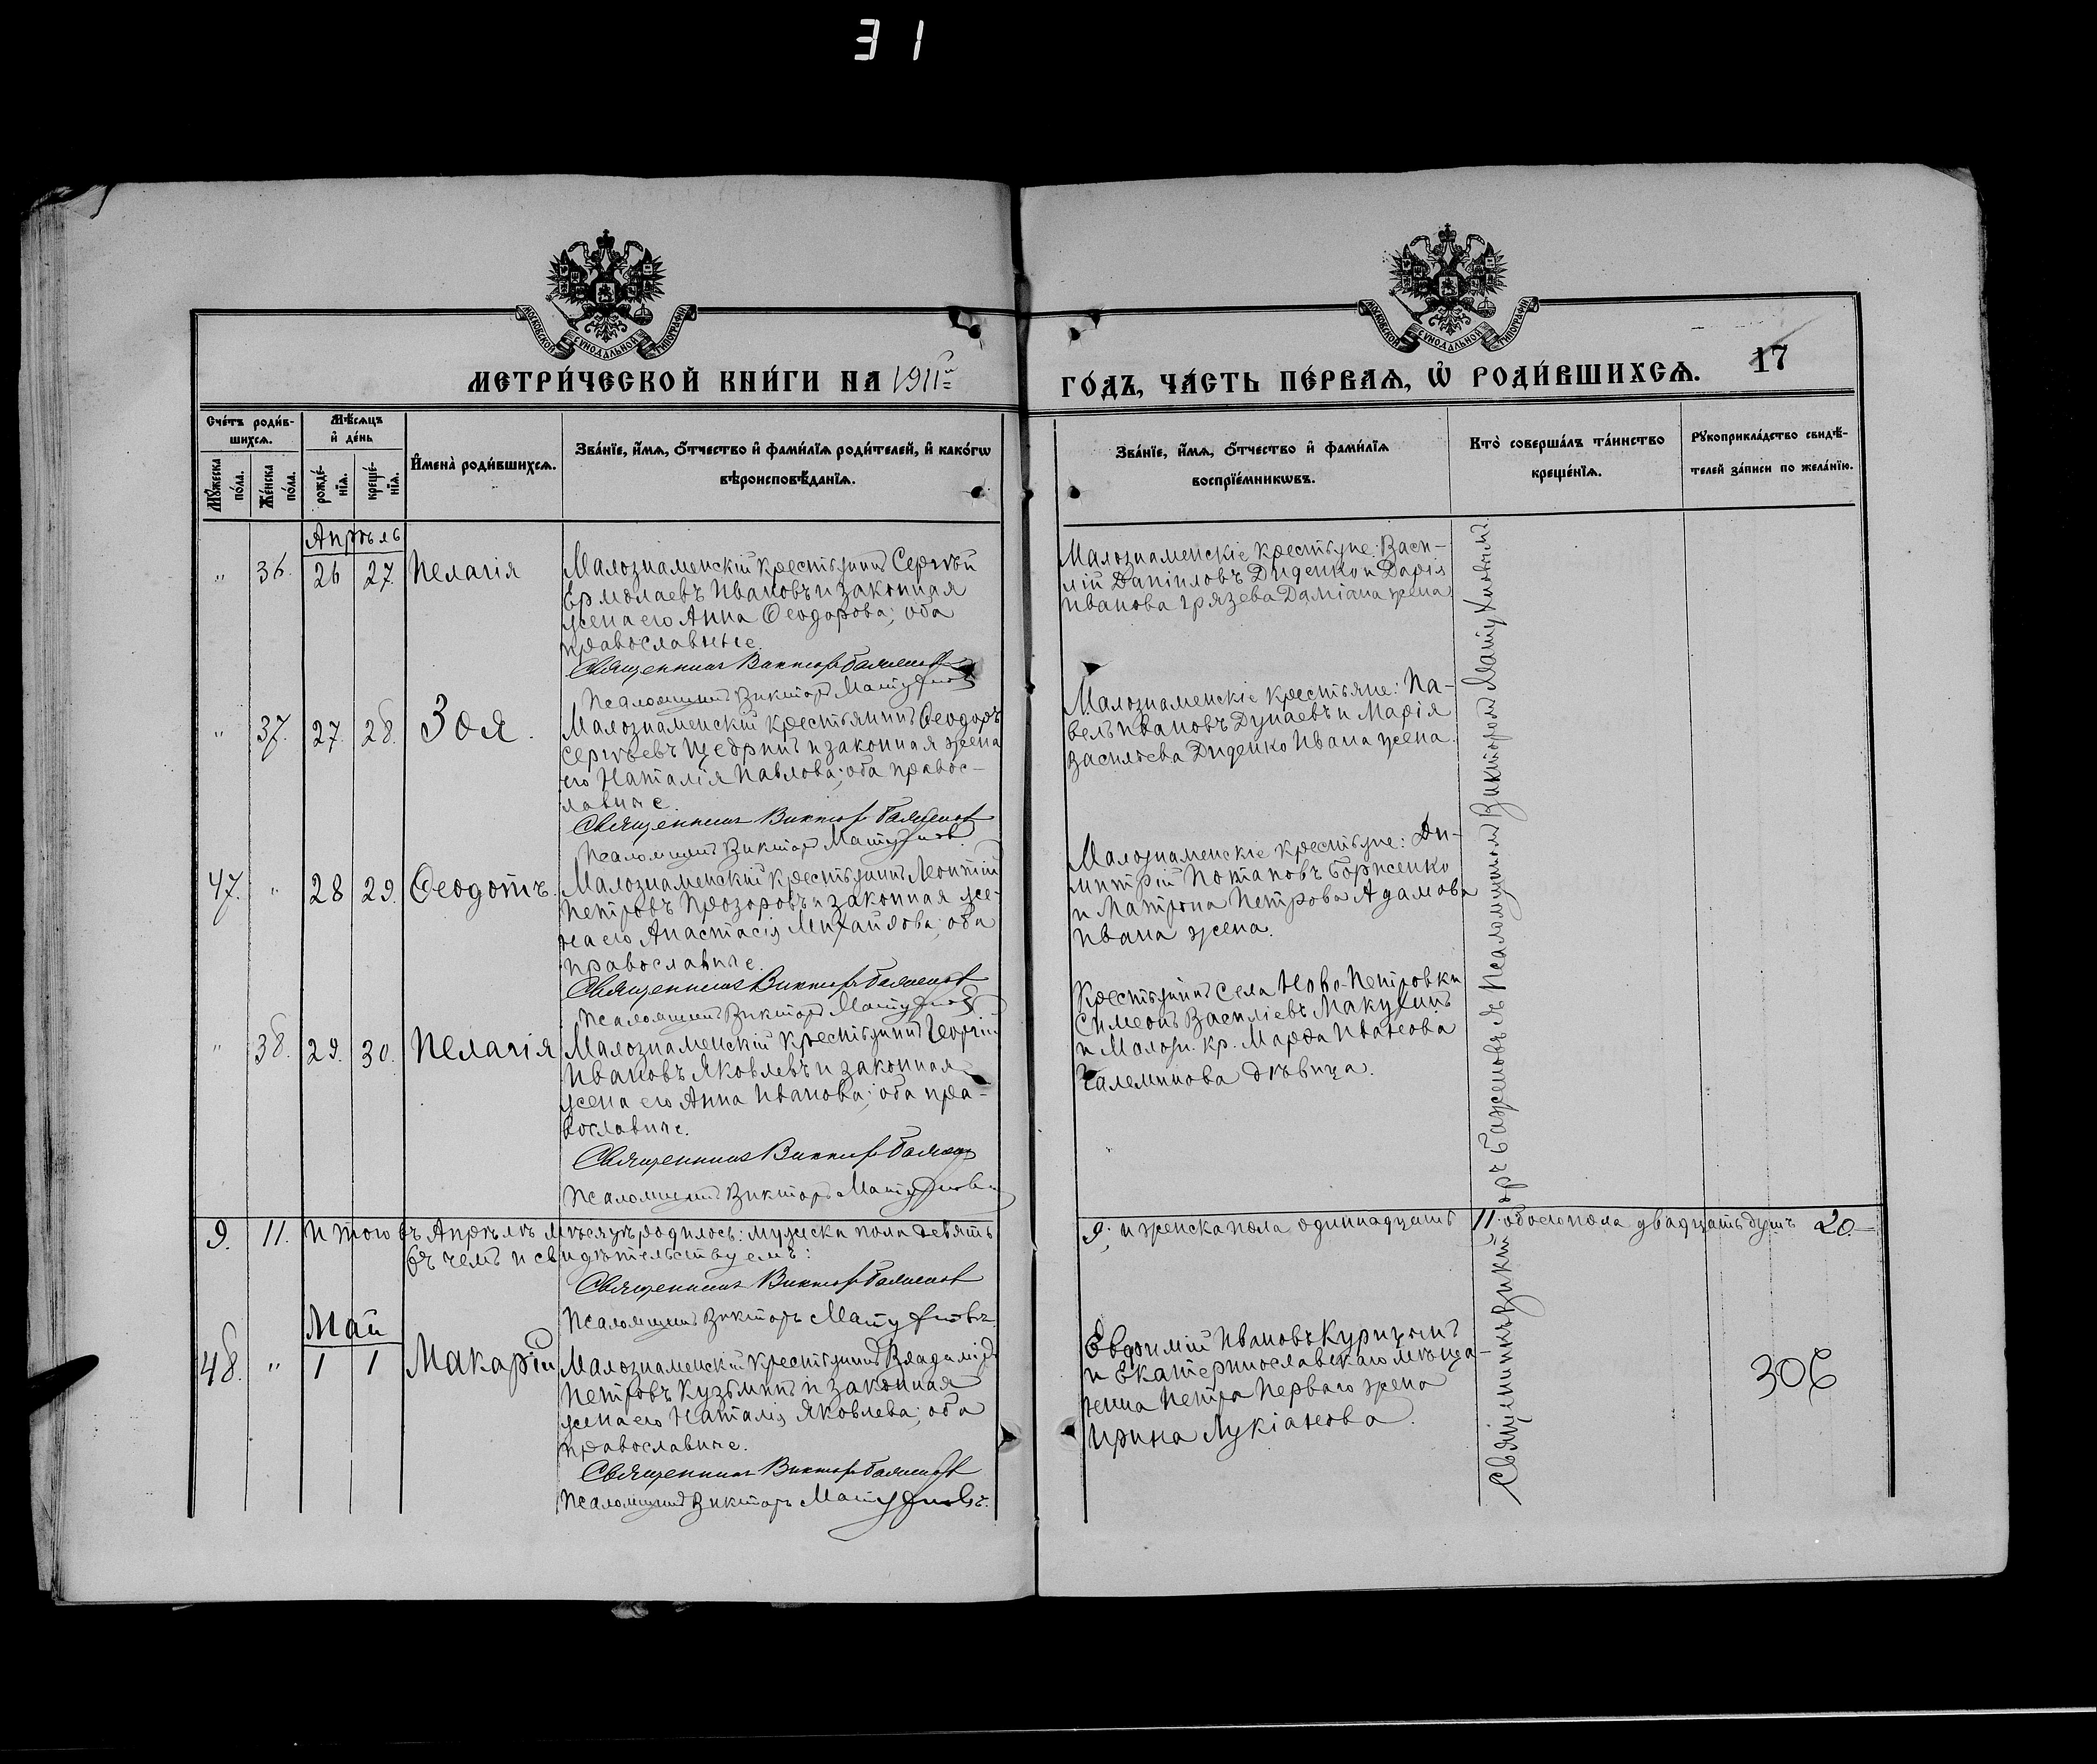 31
МОСКОВСКОЙ СѴНОДАЛЬНОЙ ТИПОГРАФІИ
МОСКОВСКОЙ СѴНОДАЛЬНОЙ ТИПОГРАФІИ
МЕТРИ́ЧЕСКОЙ КНИ́ГИ НА 1911й
ГО́ДЪ, ЧА́СТЬ ПЕ́РВАѦ, Ѡ҆ РОДИ́ВШИХСѦ. 17
Сче́тъ роди́в-
шихсѧ.
Мꙋ́жеска по́ла.
Же́нска по́ла.
Мѣ́сѧцъ
и҆ де́нь
рожде́-
нїѧ.
креще́-
нїѧ.
И҆мена̀ роди́вшихсѧ.
Зва́нїе, и҆́мѧ, ѻ҆́тчество и҆ фами́лїѧ роди́телей, и҆ како́гѡ
вѣроисповѣ́данїѧ.
Зва́нїе, и҆́мѧ, ѻ҆́тчество и҆ фами́лїѧ
воспрїе́мникѡвъ.
Кто̀ соверша́лъ та́инство
креще́нїѧ.
Рꙋкоприкла́дство свидѣ́-
телей за́писи по жела́нїю.
Апрѣль
" 36. 26 27. Пелагія
Малознаменскій крестьянинъ Сергѣй
Ермолаевъ Ивановъ и законная
жена его Анна Ѳеодорова; оба
православные
Священникъ Викторъ Баженовъ
Псаломщикъ Викторъ
Малознаменскіе крестьяне: Васи-
лій Даніиловъ Диденко и Дарія
Иванова Грязева Даміана жена
" 37. 27. 28. Зоя.
Малознаменскій крестьянинъ Ѳеодоръ
Сергѣевъ Щедринъ и законная жена
его Наталія Павлова; оба правос-
лавные.
Священникъ Викторъ Баженовъ
Псаломщикъ Викторъ
Малознаменскіе крестьяне: Па-
велъ Ивановъ Дунаевъ и Марія
Васильева Диденко Ивана жена.
47. " 28 29. Ѳеодотъ.
Малознаменскій крестьянинъ Леонтій
Петровъ Прозоровъ и законная же-
на его Анастасія Михайлова; оба
православные.
Священникъ Викторъ Баженовъ
Псаломщикъ Викторъ
Малознаменскіе крестьяне: Ди-
митрій Потаповъ Борисенко
и Матрона Петрова Адамова
Ивана жена.
" 38. 29. 30. Пелагія
Малознаменскій крестьянинъ Георгій
Ивановъ Яковлевъ и законная
жена его Анна Иванова; оба пра-
вославные.
Священникъ Викторъ Баженовъ
Псаломщикъ Викторъ
Крестьянинъ села Ново-Петровки
Симеонъ Василіевъ Макухинъ
и Малозн. кр. Марѳа Иванова
Галемпова дѣвица.
9. 11. Итого въ Апрѣлѣ мѣсяцѣ родилось: мужеска пола девять
9; и женска пола одиннадцать 11. обоего пола двадцать душъ 20.
въ чемъ и свидѣтельствуемъ:
Священникъ Викторъ Баженовъ
Псаломщикъ Викторъ
Май
48. " 1 1 Макарій
Малознаменскій крестьянинъ Владиміръ
Петровъ Кузьминъ и законная
жена его Наталія Яковлева; оба
православные.
Священникъ Викторъ Баженовъ
Псаломщикъ Викторъ
Евфимій Ивановъ Курицынъ
и Екатеринославскаго мѣща-
нина Петра Перваго жена
Ирина Лукіанова.
Священникъ Викторъ Баженовъ съ Псаломщикомъ Викторомъ
306